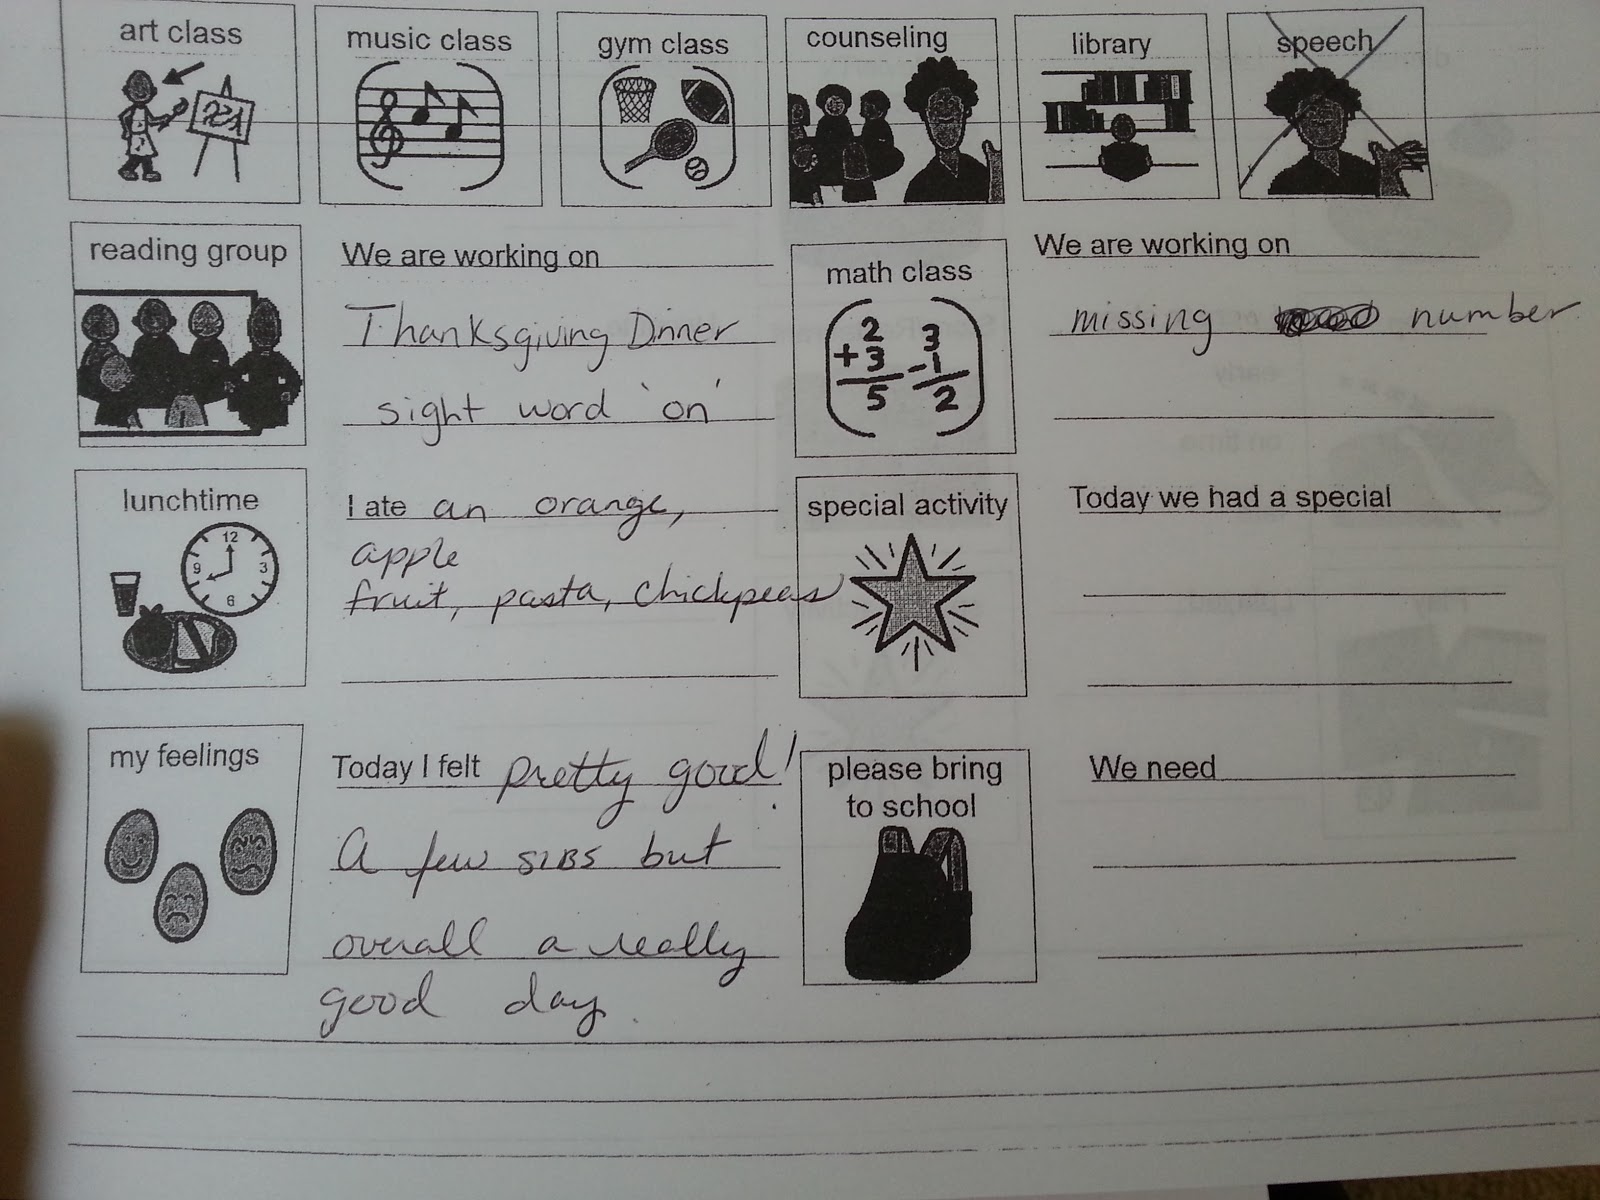 art class
music class
gym class
counseling
library
speech
reading group
We are working on
Thanksgiving Dinner
sight word 'on'
math class
2 3
+3 -1
5 2
We are working on
missing number
lunchtime
12
9 3
6
I ate an orange,
apple
fruit, pasta, chickpeas
special activity
Today we had a special
my feelings
Today I felt pretty good!
A few SIBS but
overall a really
good day.
please bring
to school
We need